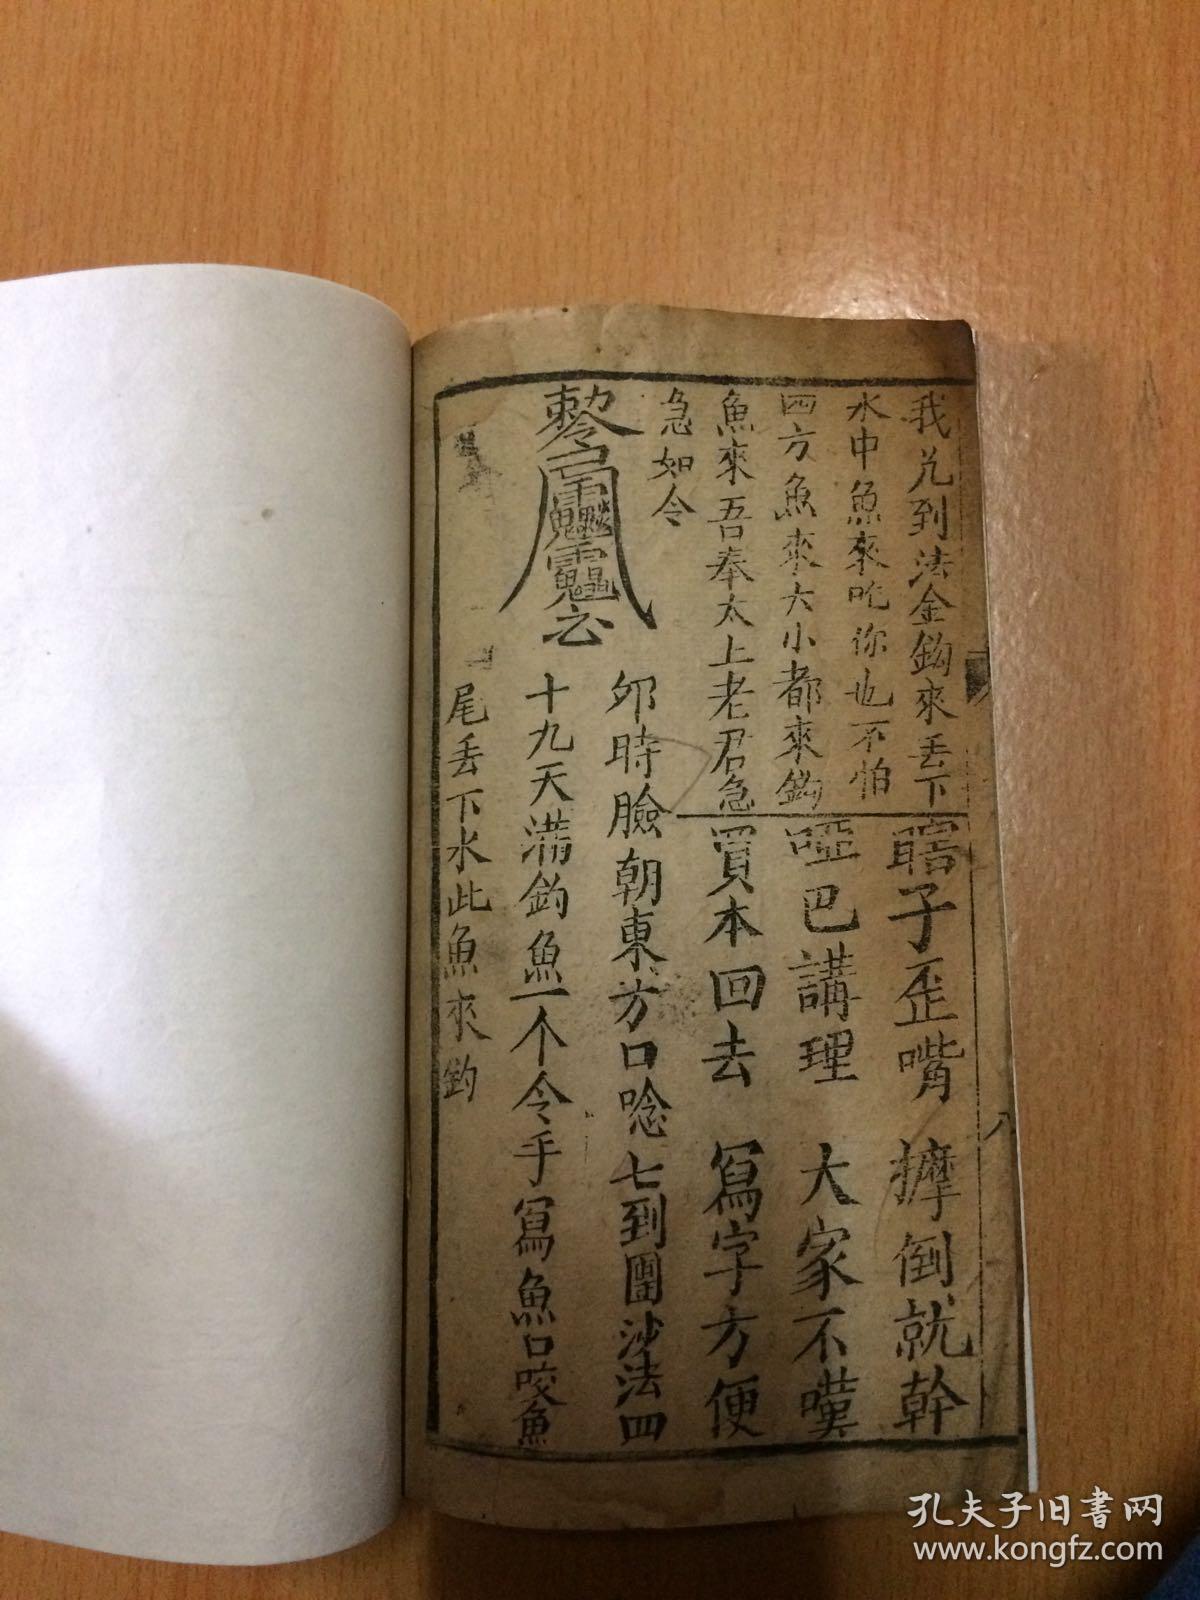 我兑到法金鈎來丢下
水中魚來吃你也不怕
四方魚來大小都來鈎
魚來吾奉太上老君急
急如令
瞎子歪嘴 擵倒就幹
啞巴講理 大家不嘆
買本回去 寫字方便
夘時臉朝東方口唸七到團沙法四
十九天滿釣魚一个令手寫魚口咬魚
尾丢下水此魚來釣
八
孔夫子旧书网
www.kongfz.com